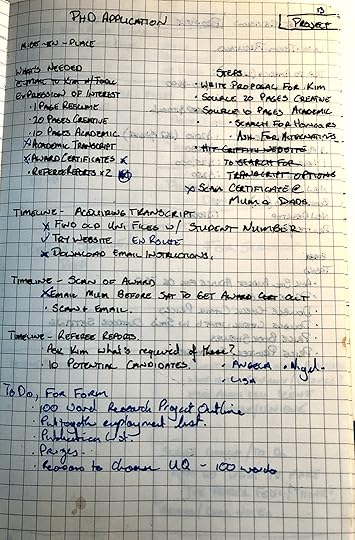 13
PHD APPLICATION
PROJECT
MISE-EN-PLACE
WHAT'S NEEDED
E-MAIL TO KIM W/TOPIC
EXPRESSION OF INTEREST
· 1 PAGE RESUME
· 20 PAGES CREATIVE
· 10 PAGES ACADEMIC
X ACADEMIC TRANSCRIPT
X AWARD CERTIFICATES X
· REFEREE REPORTS X 2
STEPS.
· WRITE PROPOSAL FOR KIM
· SOURCE 20 PAGES CREATIVE
· SOURCE 10 PAGES ACADEMIC
· SEARCH FOR HONOURS
· ASK FOR ALTERNATIVES
· HIT GRIFFITH WEBSITE
TO SEARCH FOR
TRANSCRIPT OPTIONS
X SCAN CERTIFICATE @
MUM & DADS.
TIMELINE - ACQUIRING TRANSCRIPT
X FIND OLD UNI FILES W/ STUDENT NUMBER
✓ TRY WEBSITE EN ROUTE
X DOWNLOAD EMAIL INSTRUCTIONS.
TIMELINE - SCAN OF AWARD
X EMAIL MUM BEFORE SAT TO GET AWARD CERT OUT
· SCAN & EMAIL.
TIMELINE - REFEREE REPORTS.
· ASK KIM WHAT'S REQUIRED OF THESE?
· 10 POTENTIAL CANDIDATES. · ANGELA · Nigel
· LISA
To Do, For Form
· 100 Word Research Project Outline
· Put together employment list.
· Publication List.
· Prizes.
· Reasons to Choose UQ - 100 words